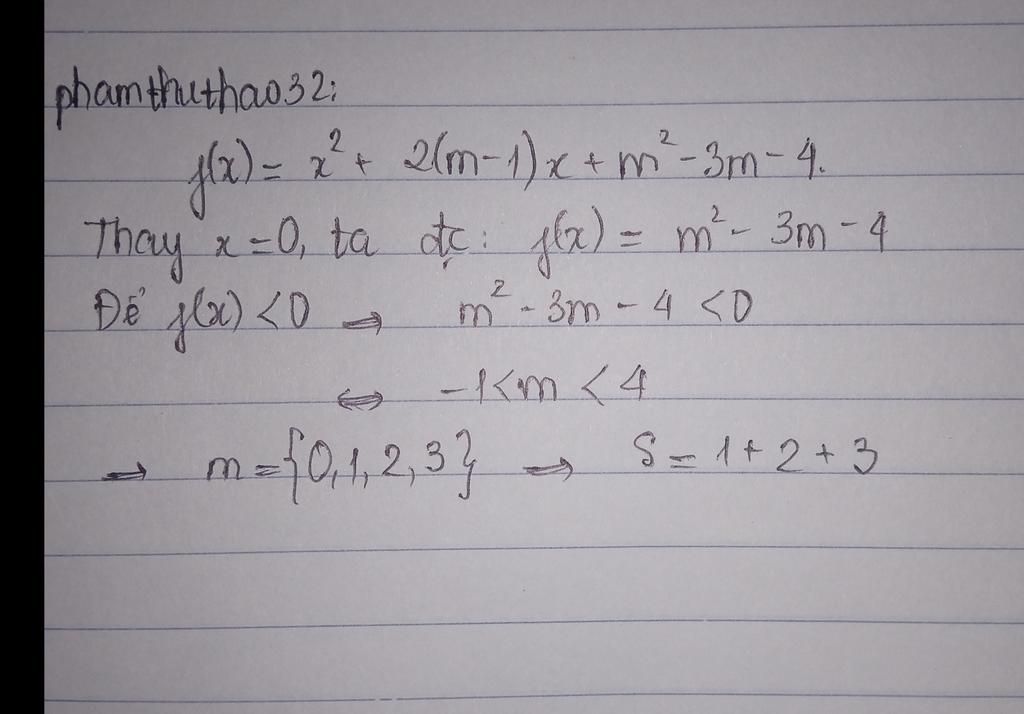 phamthuthao32:
f(x) = x² + 2(m-1)x + m² - 3m - 4.
Thay x = 0, ta đc: f(x) = m² - 3m - 4
Để f(x) < 0 ⇒ m² - 3m - 4 < 0
⇔ -1 < m < 4
→ m = {0, 1, 2, 3} ⇒ S = 1 + 2 + 3